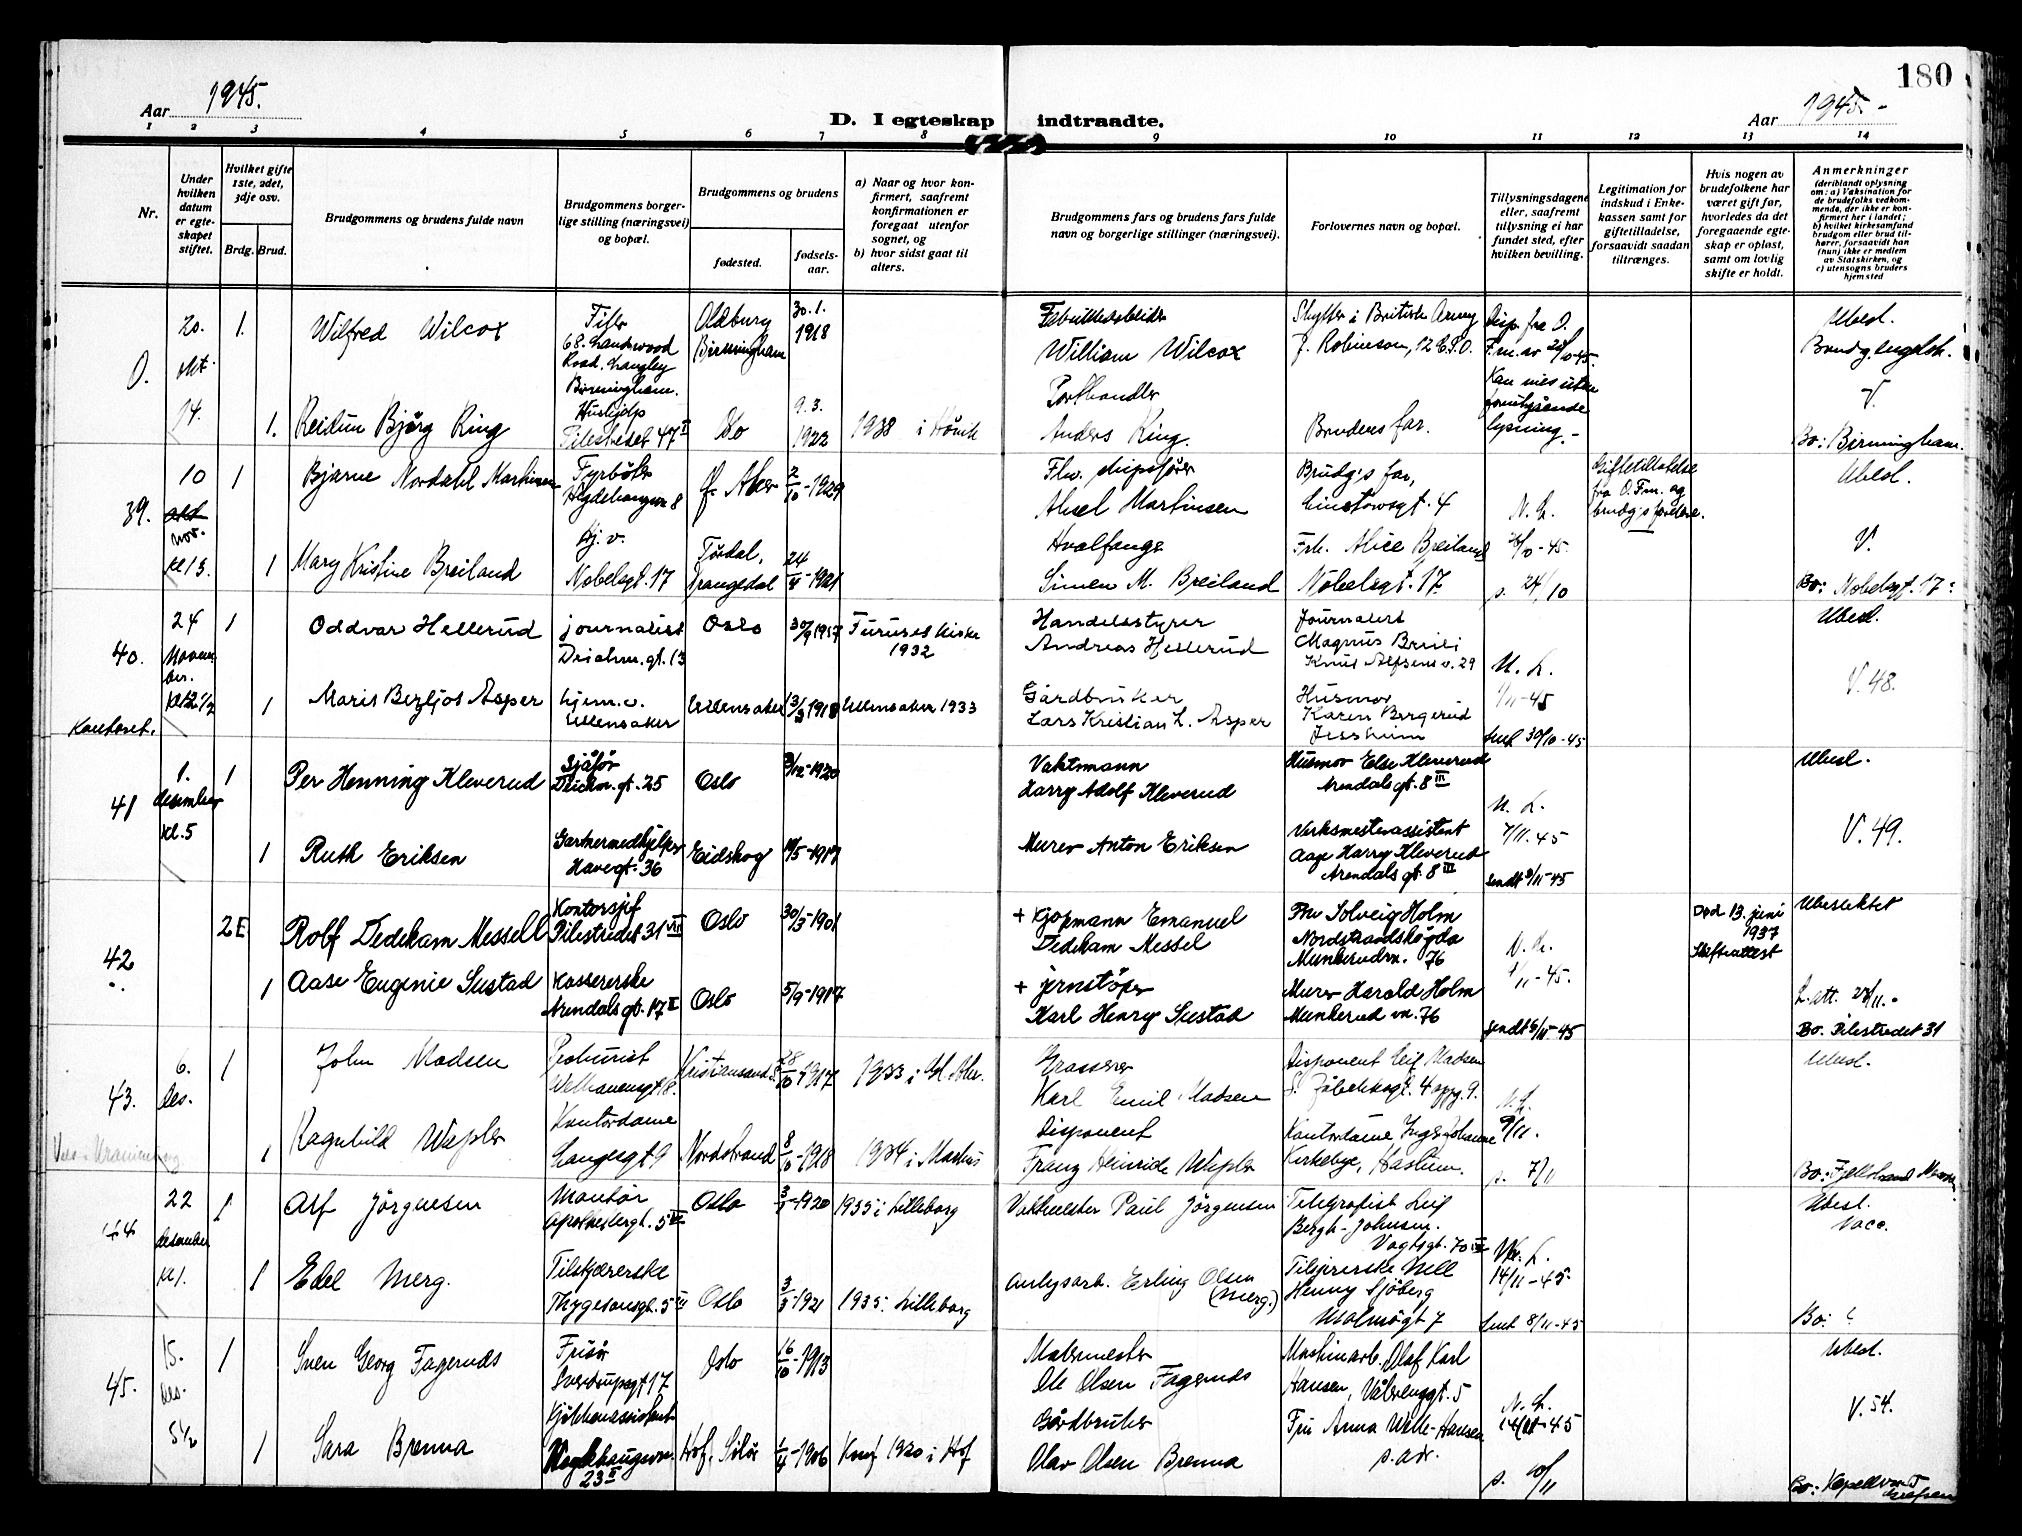 180
Aar 1945.
D. I egteskap indtraadte.
Aar 1945.-
1 2 3 4 5 6 7 8 9 10 11 12 13 14
Nr.
Under hvilken datum er egteskapet stiftet.
Hvilket gifte 1ste, 2det, 3dje osv.
Brdg. Brud.
Brudgommens og brudens fulde navn
Brudgommens borgerlige stilling (næringsvei) og bopæl.
Brudgommens og brudens
fødested.
fødselsaar.
a) Naar og hvor konfirmert, saafremt konfirmationen er foregaat utenfor sognet, og
b) hvor sidst gaat til alters.
Brudgommens fars og brudens fars fulde navn og borgerlige stillinger (næringsvei).
Forlovernes navn og bopæl.
Tillysningsdagene eller, saafremt tillysning ei har fundet sted, efter hvilken bevilling.
Legitimation for indskud i Enkekassen samt for giftetilladelse, forsaavidt saadan tiltrænges.
Hvis nogen av brudefolkene har været gift før, hvorledes da det foregaaende egteskap er opløst, samt om lovlig skifte er holdt.
Anmerkninger
(deriblandt oplysning om: a) Vaksination for de brudefolks vedkommende, der ikke er konfirmert her i landet; b) hvilket kirkesamfund brudgom eller brud tilhører, forsaavidt han (hun) ikke er medlem av Statskirken, og c) utensogns bruders hjemsted
0.
20. okt. 14.
1.
Wilfred Wilcox
68. Landswood Road, Langley Birmingham.
Oldbury Birmingham
30.1. 1918
Fabrikkarbeider
William Wilcox
Skytter i British Army
J. Robinson, 12 C.P.O.
Disp. fra O.
Kan vies uten forutgående lysning.-
Ubesl.
Brudg. engelsk.
1.
Reidun Bjørg Ring
Hushjelp
Pilestredet 47 II
Oslo
9.3. 1922
1938 i
Anders Ring.
Brudens far.
V.
Bo: Birmingham.
39.
10 okt nov. kl 13.
1
Bjarne Nordahl Martinsen
Fyrbøter
Hegdehaugsv 8
Ø. Aker
2/10-1924
Aksel Martinsen
Brudg's far,
Linstowsgt. 4
N. L.
Giftetillatelse fra O. Fm. og brudg's foreldre.
Ubesl.
1
Mary Kristine Breiland
Hj. v.
Nobelsgt. 17
Tørdal, Drangedal
24/4-1921
Hvalfanger
Simen M. Breiland
Frk. Alice Breiland
Nobelsgt. 17.
s. 24/10
V.
Bo: Nobelsgt. 17.
40.
Kontoret.
24 November. kl 12 1/2
1
Oddvar Hellerud
journalist
Deichm. gt. 13
Oslo
30/9 1917
Furuset kirke 1932
Handelsstyrer
Andreas Hellerud
Journalist
Magnus Breili
Knut Alfsens v. 29
N. L.
Ubesl.
1
Marit Bergljot Asper
hjem. v.
Ullensaker
Ullensaker
13/3 1918
Ullensaker 1933
Gårdbruker
Lars Kristian L. Asper
Husmor
Karen Bergerud
Jessheim
1/11-45
sendt 30/10-45
V. 48.
41
1. desember kl. 5
1
Per Henning Kleverud
Sjåfør
Deichm. gt. 25
Oslo
1920
Vaktmann
Harry Adolf Kleverud
Husmor Else Kleverud
Arendals gt. 8 III
N. L.
Ubesl.
1
Ruth Eriksen
Gartnermedhjelper
Havegt. 36
Eidskog
1917
Murer Anton Eriksen
Verksmesterassistent
Aage Harry Kleverud
Arendals gt. 8 III
7/11-45
V. 49.
42
2E
Rolf Dedekam Messell
Kontorsjef
Pilestredet 31 VII
Oslo
30/3-1901
+ Kjøpmann Emanuel
Dedekam Messel
Fru Solveig Holm
Nordstrandshøgda
Munkerudv. 76
N. L.
Død 13. juni 1937
Skifteattest
Ubeslektet
1
Aase Eugenie Sustad
Kassererske
Arendals gt. 17 II
Oslo
5/9-1917
+ jernstøper
Karl Henry Sustad
Murer Harald Holm
Munkerud vn. 76
L. att. 28/11.
Bo. Pilestredet 31
43.
6. des.
1
John Madsen
Welhavensgt 18.
Kristiansand S.
28/10-1917
1933 i Gl. Aker.
Grosserer
Karl Emil Madsen
Disponent Leif Madsen
N. L.
Ubesl.
1
Ragnhild Wepler
Kontordame
Langesgt 9
Nordstrand
8/10-1918
1934 i Markus
Disponent
Franz Heinrich Wepler
Kontordame Inger Johanne
Kirkebye, Haslum.
9/11.
s. 7/11
44
22 desember kl 1.
1
Alf Jörgensen
Montør
Apotekergt. 5
Oslo
1920
1935 i Lilleborg
Vaktmester Paul Jörgensen
Telegrafist Leif
Bergh-Johnsen.
Vogtsgt. 70
N. L.
Ubesl.
Vacc.
1
Edel Merg.
Tilskjærerske
Thygesonsgt. 5 III
Oslo
3/3-1921
1935. Lilleborg
Anlegsarb. Erling Olsen (Merg.)
Henny Sjöberg
Malmøgt 7
14/11-45
sendt 8/11-45
Bo: ?
45.
15. des. 5 1/2
1
Sven Georg Fagernds
Frisør
Sverdrupsgt 17
Oslo
16/10-1913
Malermester
Ole Olsen Fagernds
Maskinarb. Olaf Karl
Hansen, Vålerenggt. 5
N. L.
Ubesl.
1
Sara Brenna
Kjøkkenassistent
23 II
Hof, Solør
1/4-1906
Konf 1920 i Hof
Gårdbruker
Olav Olsen Brenna
Fru Anna Wille-Hansen
s. adr.
V. 54.